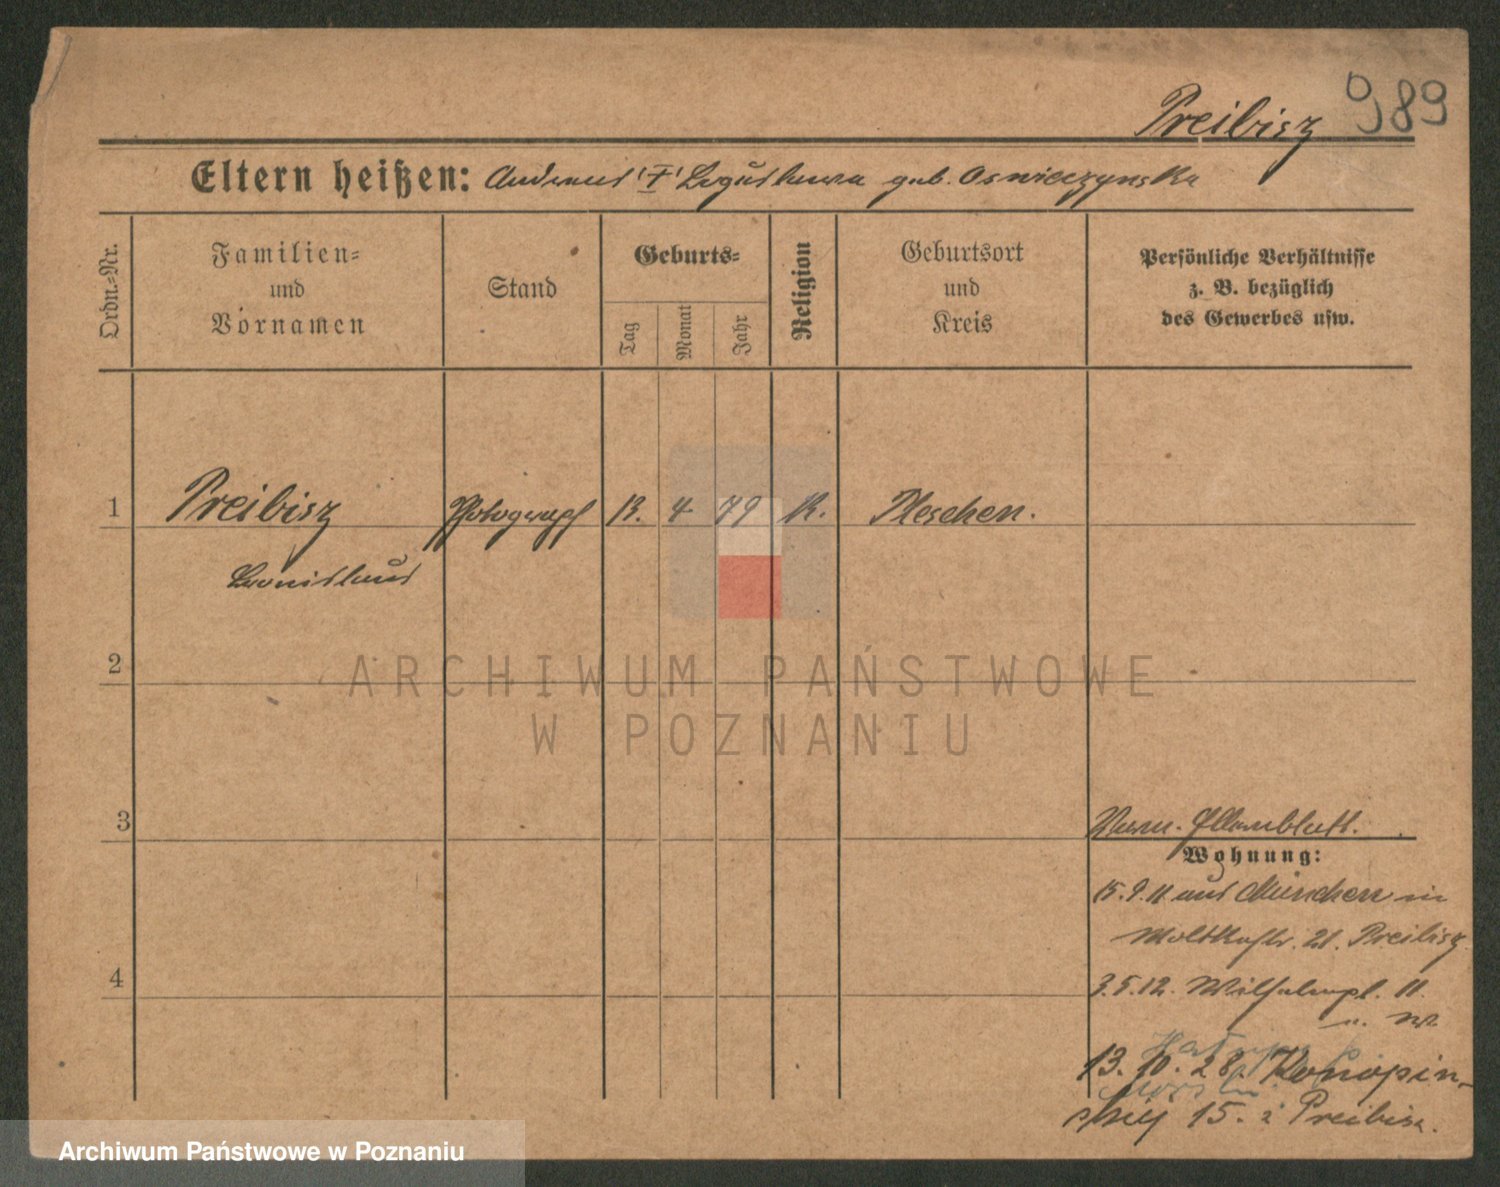 Preibisz 989
Eltern heißen: Andreas "†" Boguslawa geb. Oswieczynska
Ordn.-Nr.
Familien-
und
Vornamen
Stand
Geburts-
Tag
Monat
Jahr
Religion
Geburtsort
und
Kreis
Persönliche Verhältnisse
z. B. bezüglich
des Gewerbes usw.
1 Preibisz Photograph 13. 4 79 K. Pleschen.
Bronislaus
2
3
Wohnung:
15. 9. 11 aus München in
Moltkestr. 21. Preibisz
4
3. 5. 12. Wilhelmpl. 11.
13. 10. 28. Konopin-
skiej 15. z Preibisz.
ARCHIWUM PAŃSTWOWE
W POZNANIU
Archiwum Państwowe w Poznaniu